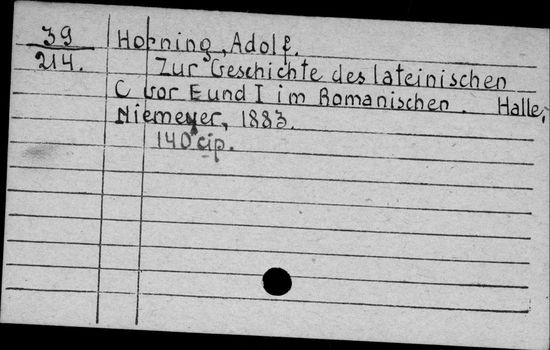 39 Horning, Adolf.
214. Zur Geschichte des lateinischen
C vor E und I im Romanischen. Halle,
Niemeyer, 1883.
140 стр.